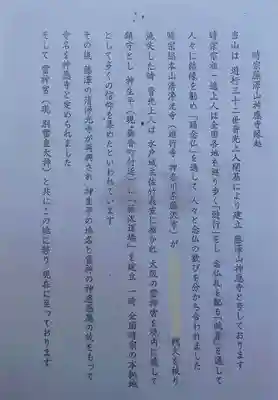 時宗藤澤山神應寺縁起
当山は 遊行三十二世普光上人開基により建立 藤澤山神應寺と号しております
時宗宗祖一遍上人は全国各地を巡り歩く「遊行」をし 念仏札を配る「賦算」を通して
人々と結縁を勧め 「踊念仏」を通して 人々と念仏の歓びを分かち合われました
時宗総本山清浄光寺(遊行寺 神奈川県藤沢市)が 戦火を被り
焼失した時 普光上人は 水戸城主佐竹義宣に招かれ 大阪の雷神宮を境内に勧して
鎮守とし 神生平(現 付近)に「藤沢道場」を建立 一時 全国時宗の本拠地
として多くの信仰を集めたといわれています
その後 藤澤の清浄光寺が再興され 神生平の地名と雷神の神速感應の故をもって
寺名を神應寺と定められました
そして 雷神宮(現 別雷皇太神)と共にこの地に移り 現在に至っております